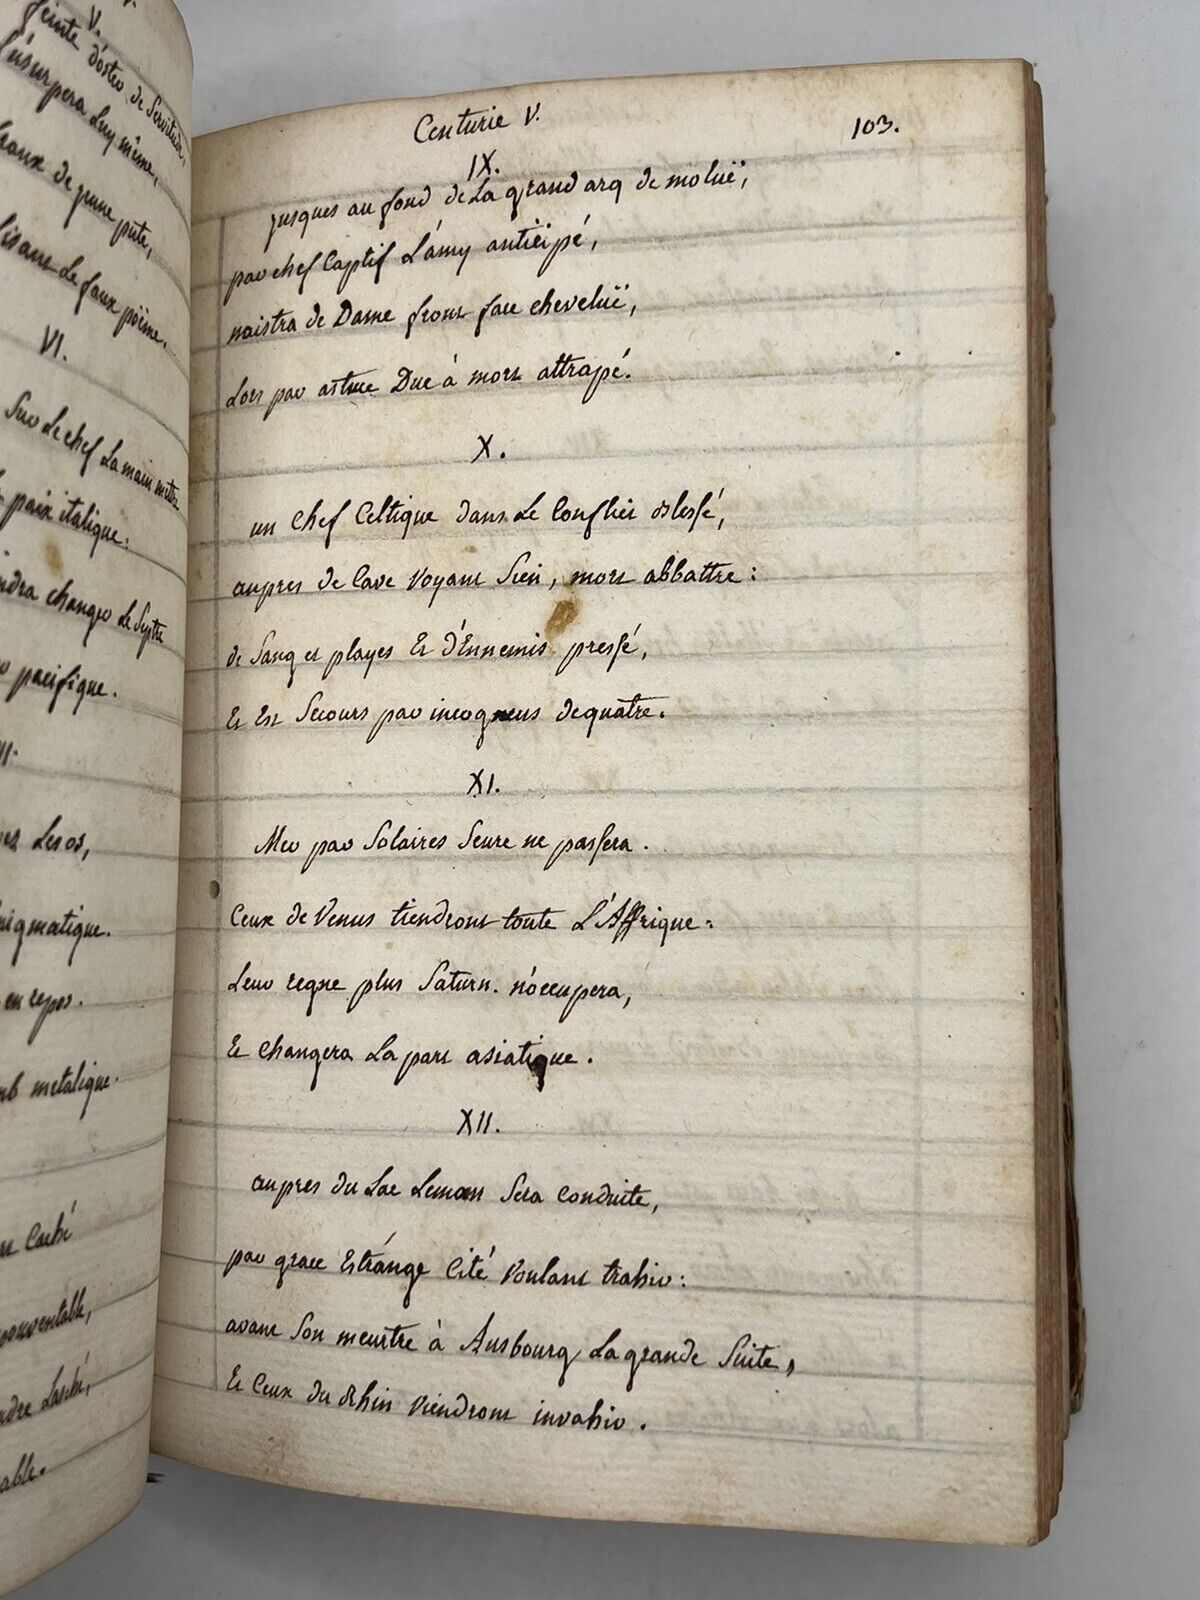 V.
feinte d'oster de Servitude,
L'usurpera Luy même,
de jeune pute,
Lisant Le faux poëme.
VI.
Sur Le chef La main mettra
paix italique:
viendra changer Le Septre
pacifique.
Les os,
Enigmatique.
en repos.
metalique.
Caché
able.
Centurie V.
103.
IX.
jusques au fond de La grand arq de moluë,
par chef Captif L'amy anticipé,
naistra de Dame front face cheveluë,
Lors par astuce Duc à mort attrapé.
X.
un Chef Celtique dans Le Conflict blessé,
aupres de Cave Voyant Sien, mort abbattre:
de Sang et playes Et d'Ennemis pressé,
Et Est Secours par incogneus de quatre.
XI.
Mer par Solaires Seure ne passera.
Ceux de Venus tiendront toute L'Affrique:
Leur regne plus Saturn. n'occupera,
Et changera La part asiatique.
XII.
aupres du Lac Leman Sera Conduite,
par grace Estrange Cité Voulant trahir:
avant Son meurtre à Ausbourg La grande Suite,
Et Ceux du Rhin Viendront invahir.